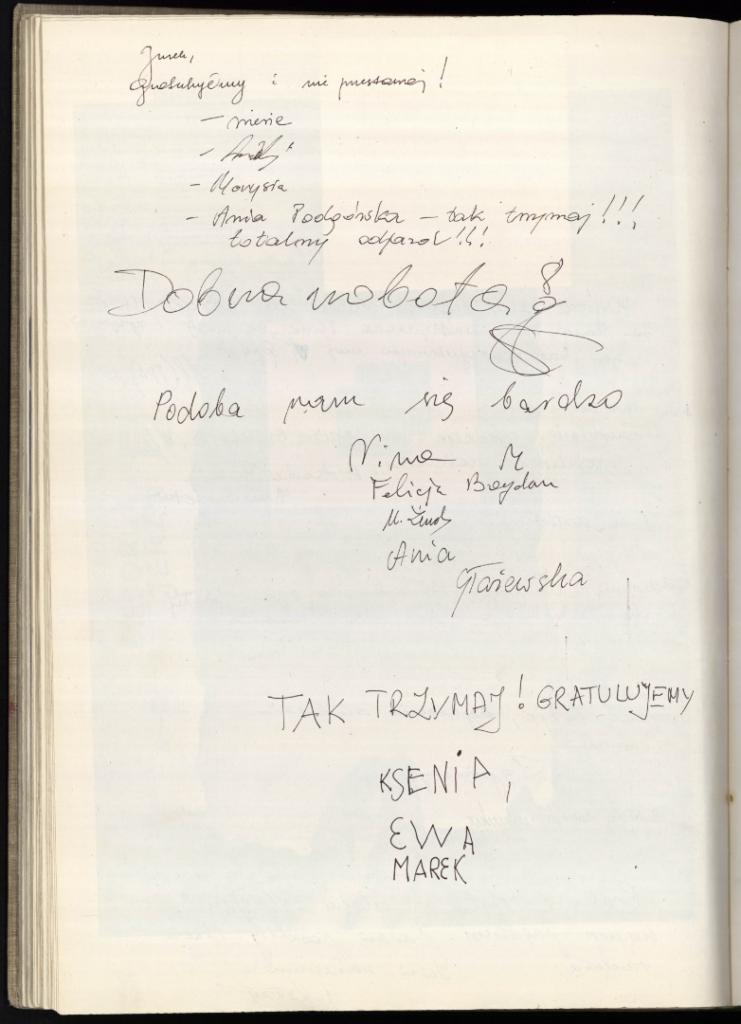 Jurek,
gratulujemy i nie przestawaj!
-
-
- Marysia
- Ania Podgórska – tak trzymaj!!!
totalny odjazd!!!
Dobra robota
Podoba nam się bardzo
Nina M
Felicja Bogdan
M.
Ania
Głażewska
TAK TRZYMAJ! GRATULUJEMY
KSENIA,
EWA
MAREK